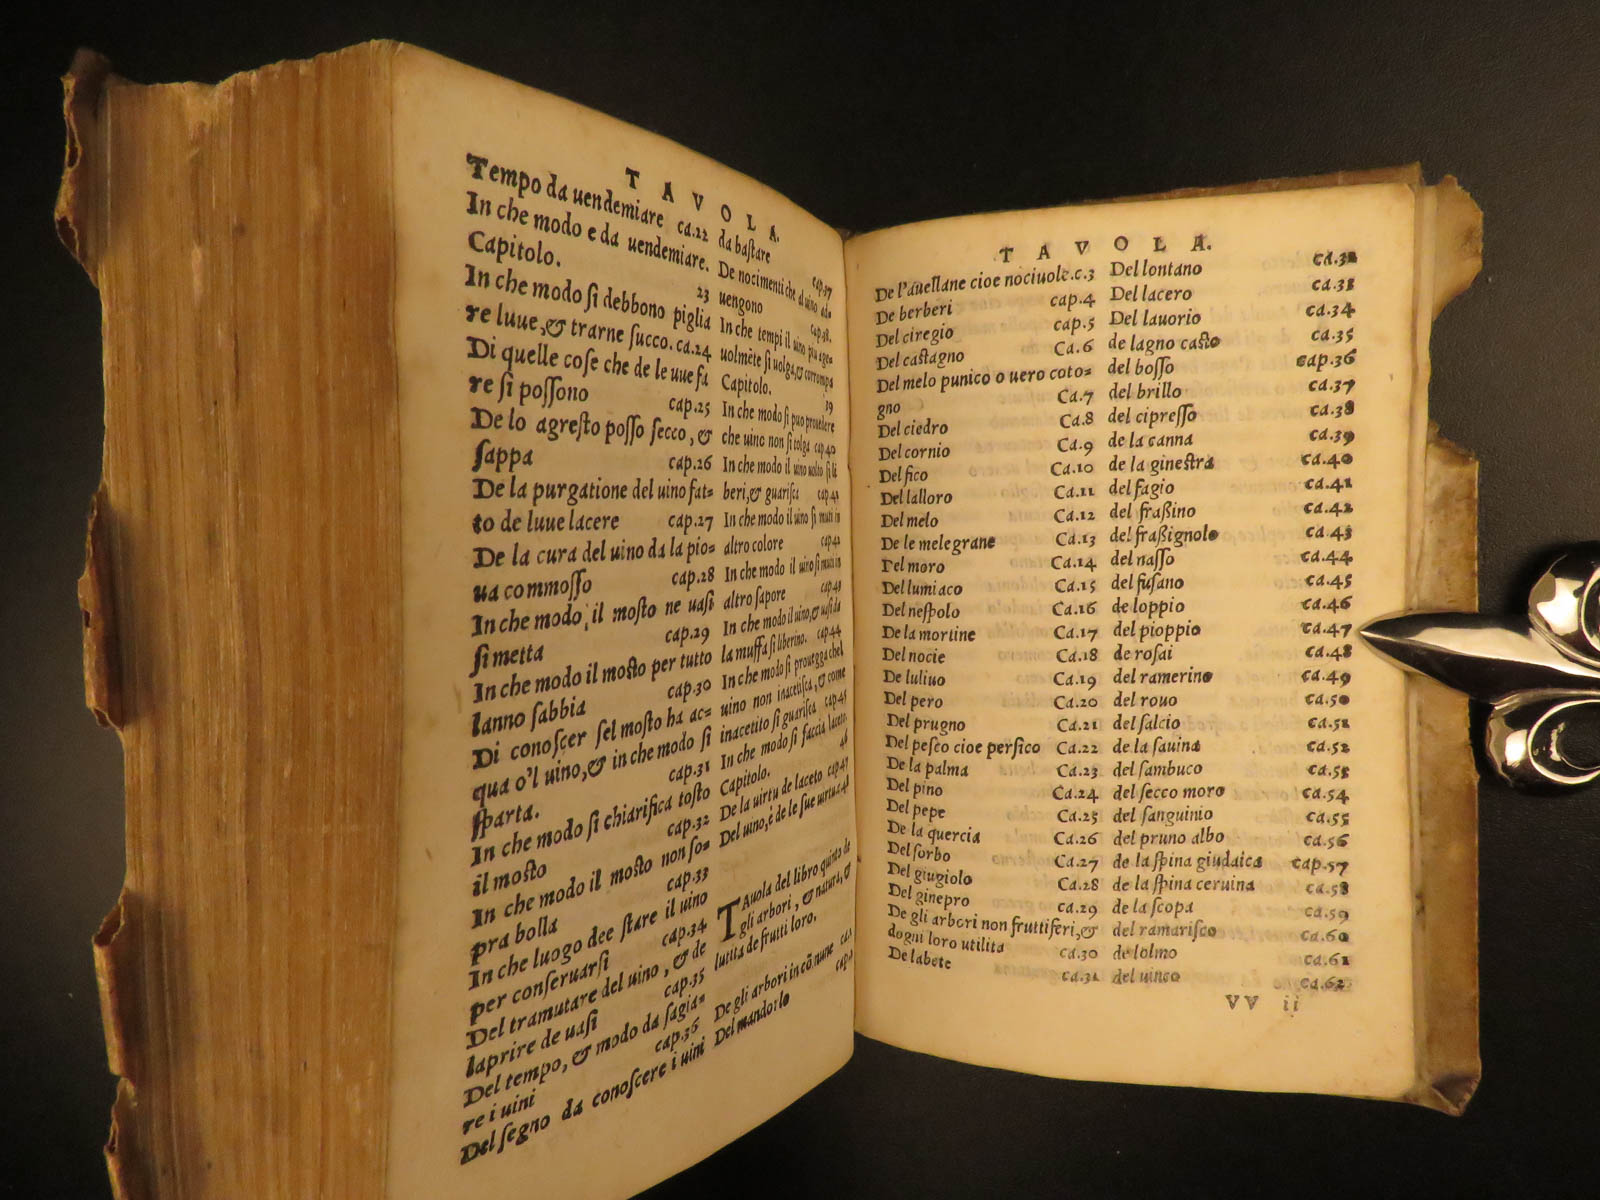 TAVOLA.
Tempo da uendemiare ca.22
In che modo e da uendemiare.
Capitolo. 23
In che modo si debbono piglia
re luue, & trarne succo. ca.24
Di quelle cose che de le uue fa
re si possono cap.25
De lo agresto posso secco, &
sappa cap.26
De la purgatione del uino fat=
to de luue lacere cap.27
De la cura del uino da la pio=
ua commosso cap.28
In che modo il mosto ne uasi
si metta cap.29
In che modo il mosto per tutto
lanno sabbia cap.30
Di conoscer sel mosto ha ac=
qua o'l uino, & in che modo si
sparta. cap.31
In che modo si chiarifica tosto
il mosto cap.32
In che modo il mosto non so=
pra bolla cap.33
In che luogo dee stare il uino
per conseruarsi cap.34
Del tramutare del uino, & de
laprire de uasi cap.35
Del tempo, & modo da sagia=
re i uini cap.36
Del segno da conoscere i uini
da bastare cap.37
De nocimenti che al uino ad=
uengono cap.38.
In che tempi il uino piu age=
uolmēte si uolga, & corrompa
Capitolo. 39
In che modo si puo prouedere
che uino non si uolga cap.40
In che modo il uino uolto si li
beri, & guarisca cap.41
In che modo il uino si muti in
altro colore cap.42
In che modo il uino si muti in
altro sapore cap.43
In che modo il uino, & uasi da
la muffa si liberino. cap.44
In che modo si prouegga chel
uino non inacetisca, & come
inacetito si guarisca cap.45
In che modo si faccia laceto.
Capitolo. 46
De la uirtu de laceto cap.47
Del uino, è de le sue uirtu c.48
Tauola del libro quinto de
gli arbori, & natura, &
lutita de frutti loro.
De gli arbori in cōmune ca.1
Del mandorlo cap.2
TAVOLA.
De l'auellane cioe nociuole.c.3
De berberi cap.4
Del ciregio cap.5
Del castagno Ca.6
Del melo punico o uero coto=
gno Ca.7
Del ciedro Ca.8
Del cornio Ca.9
Del fico Ca.10
Del lalloro Ca.11
Del melo Ca.12
De le melegrane Ca.13
Del moro Ca.14
Del lumiaco Ca.15
Del nespolo Ca.16
De la mortine Ca.17
Del nocie Ca.18
De luliuo Ca.19
Del pero Ca.20
Del prugno Ca.21
Del pesco cioe persico Ca.22
De la palma Ca.23
Del pino Ca.24
Del pepe Ca.25
De la quercia Ca.26
Del sorbo Ca.27
Del giugiolo Ca.28
Del ginepro ca.29
De gli arbori non fruttiferi, &
dogni loro utilita ca.30
De labete ca.31
Del lontano ca.32
Del lacero ca.33
Del lauorio ca.34
de lagno casto ca.35
del bosso cap.36
del brillo ca.37
del cipresso ca.38
de la canna ca.39
de la ginestra ca.40
del fagio ca.41
del frassino ca.42
del frassignolo ca.43
del nasso ca.44
del fusano ca.45
de loppio ca.46
del pioppio ca.47
de rosai ca.48
del ramerino ca.49
del rouo ca.50
del salcio ca.51
de la sauina ca.52
del sambuco ca.53
del secco moro ca.54
del sanguinio ca.55
del pruno albo ca.56
de la spina giudaica cap.57
de la spina ceruina ca.58
de la scopa ca.59
del ramarisco ca.60
de lolmo ca.61
del uinco ca.62
VV ii